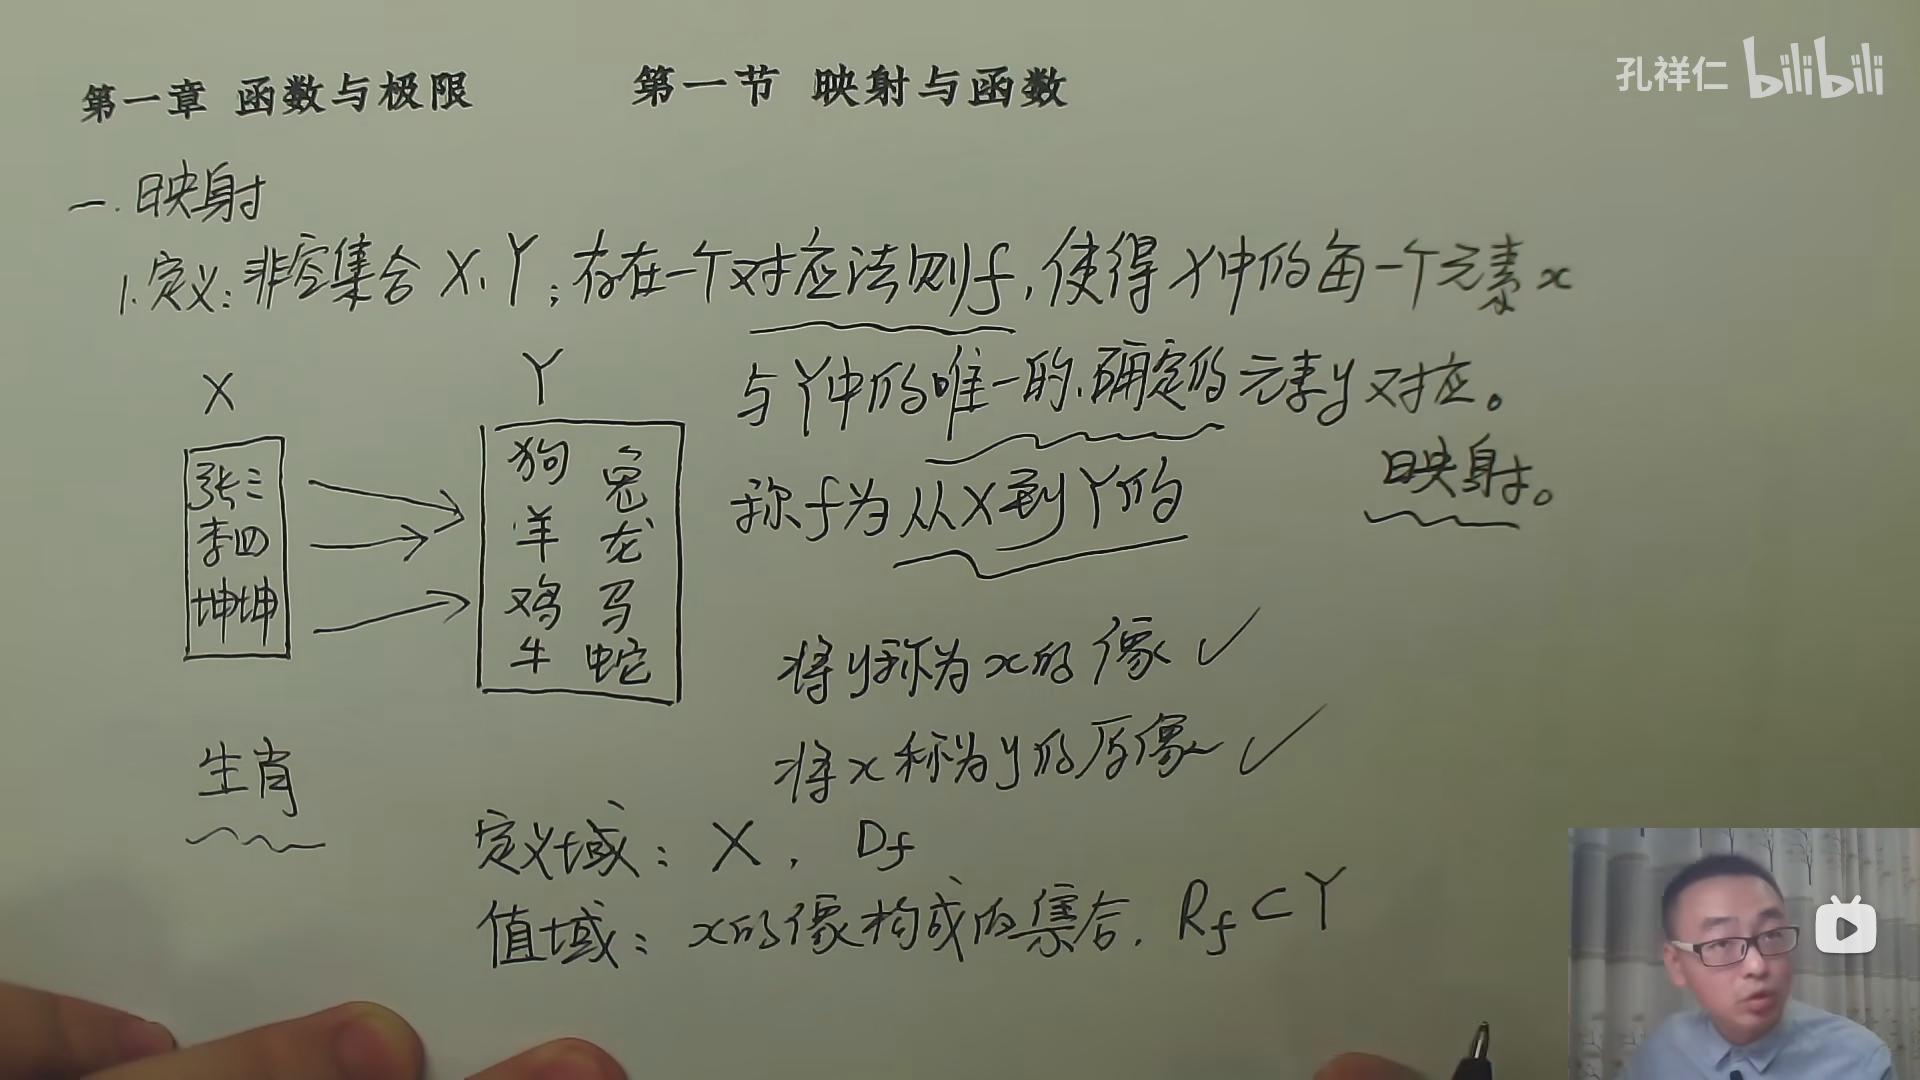 第一章 函数与极限 第一节 映射与函数
孔祥仁 bilibili
一. 映射
1. 定义: 非空集合 X、Y; 存在一个对应法则f, 使得X中的每一个元素x
与Y中的唯一的、确定的元素y对应。
称f为从X到Y的映射。
X
张三
李四
坤坤
Y
狗 兔
羊 龙
鸡 马
牛 蛇
生肖
将y称为x的像 ✓
将x称为y的原像 ✓
定义域: X, Df
值域: x的像构成的集合. Rf⊂Y